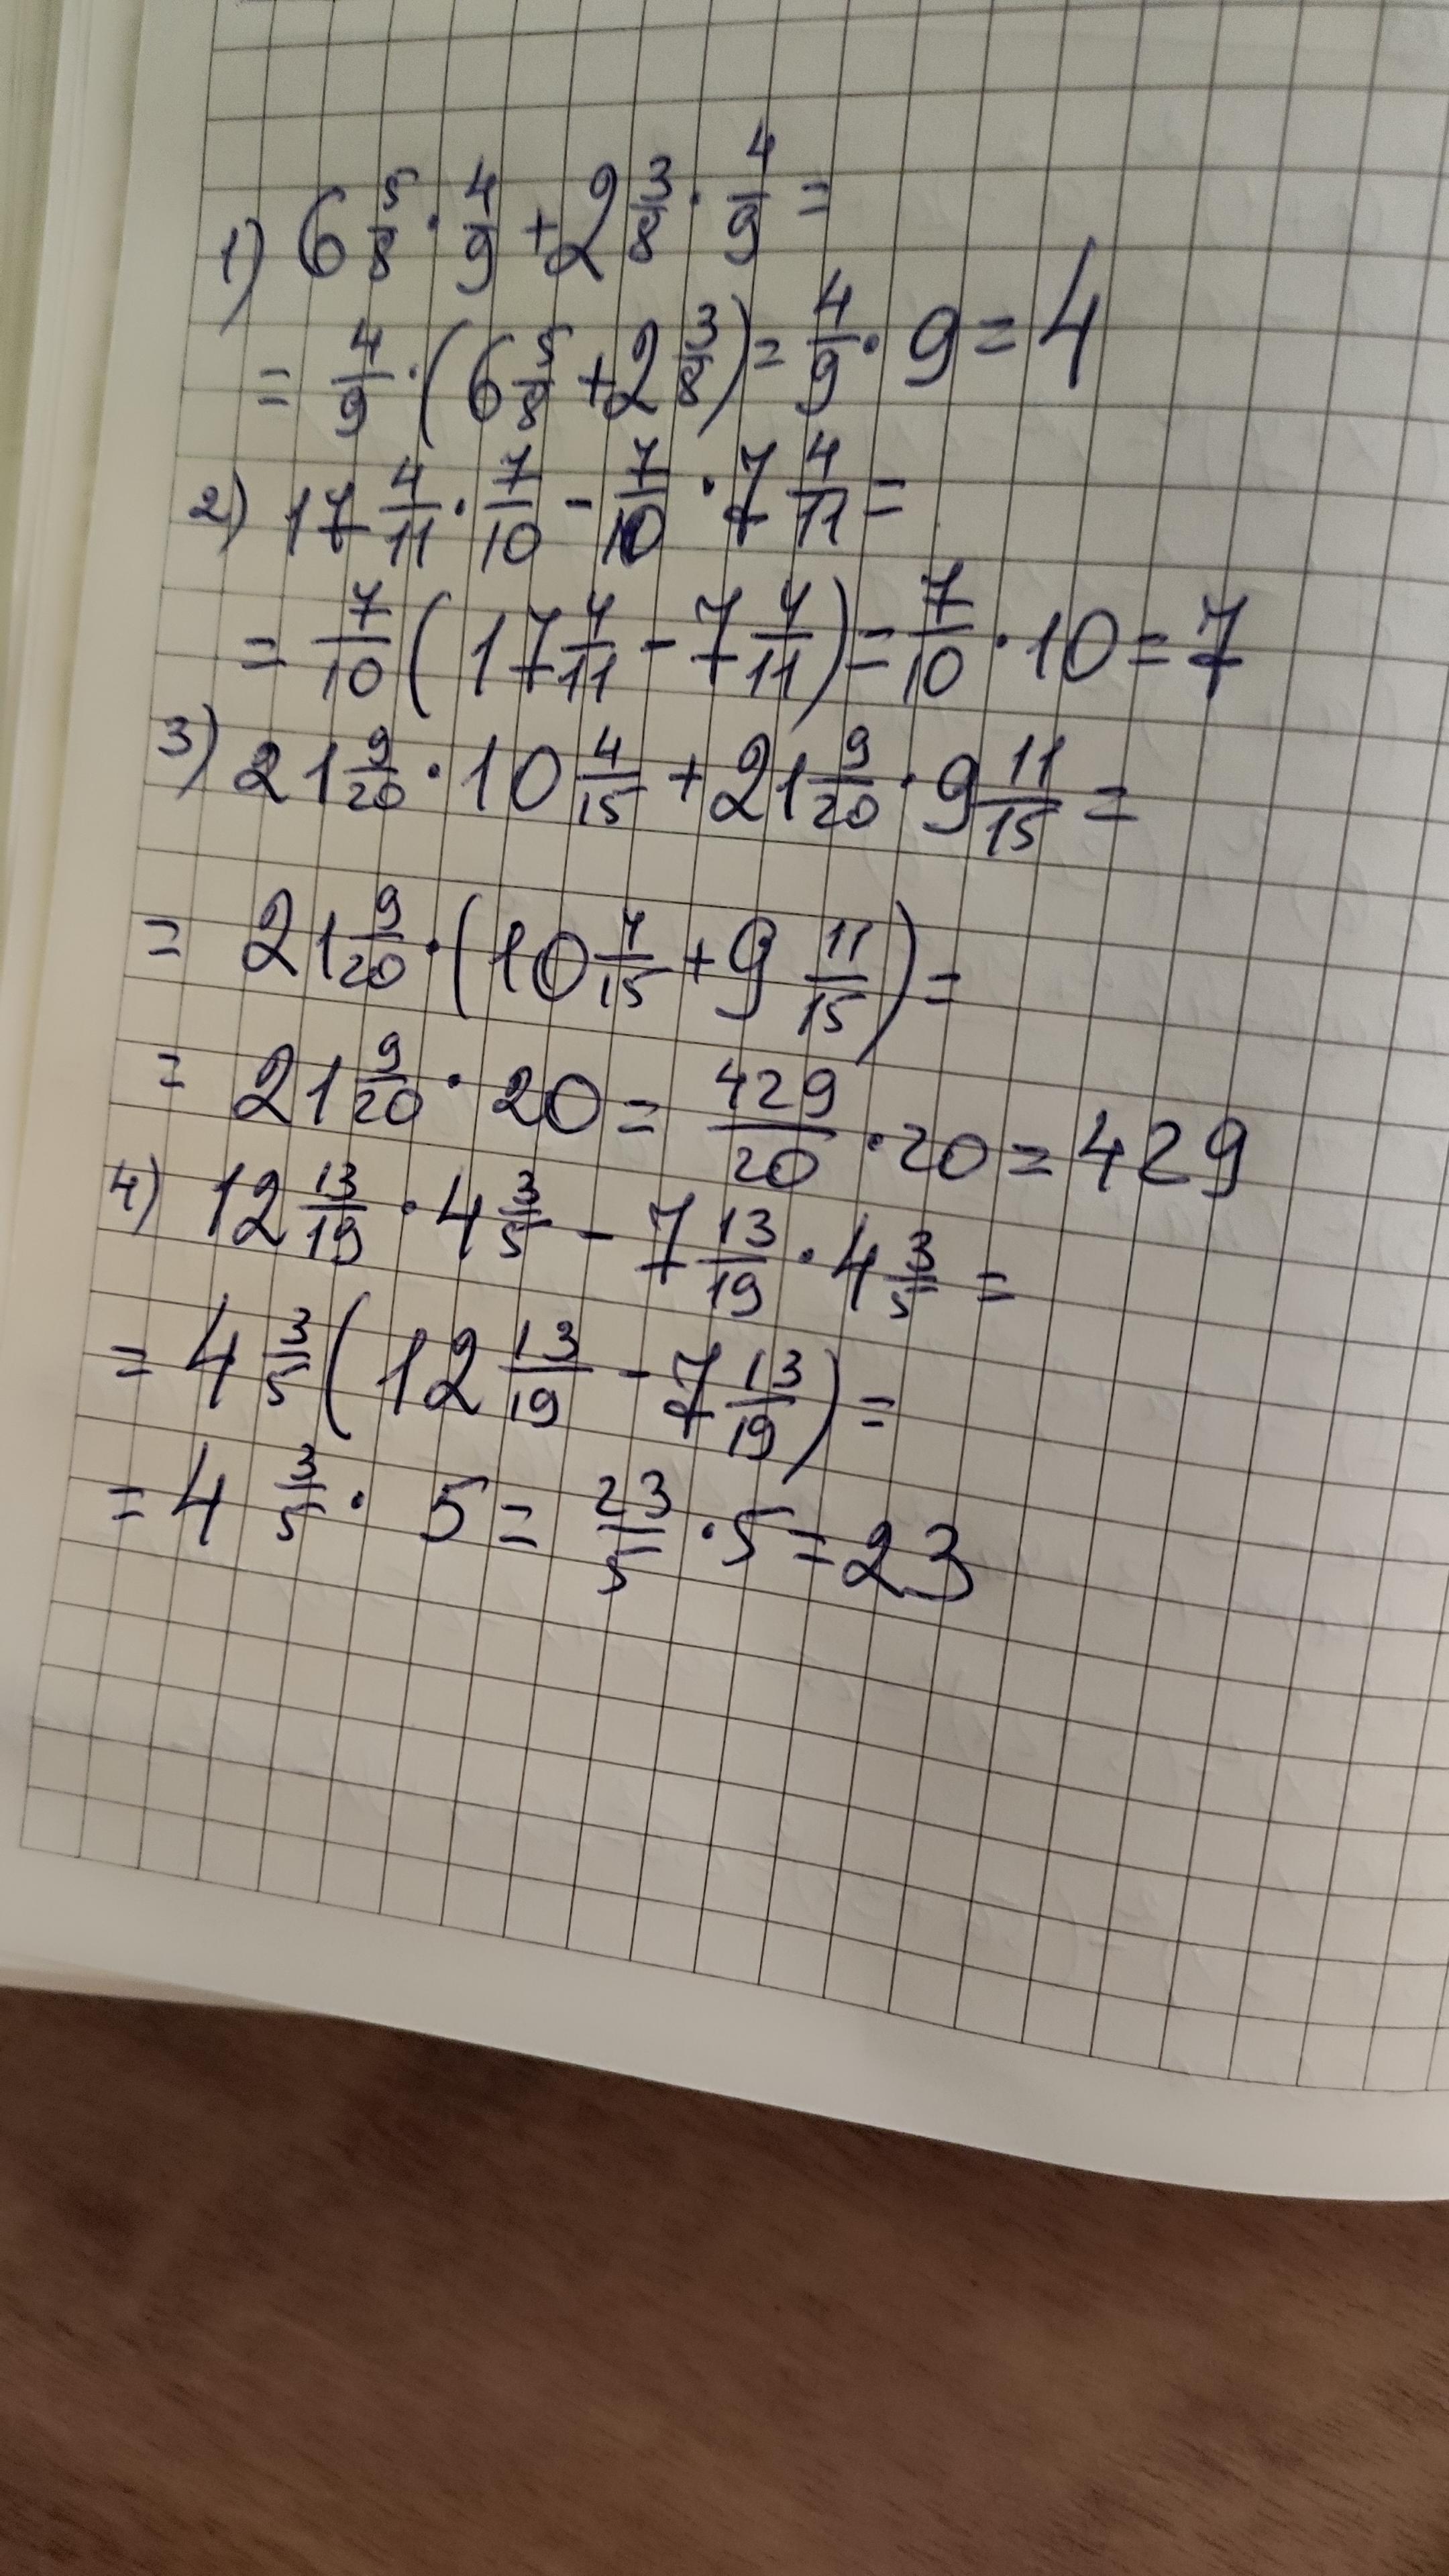 1) 6 5/8 · 4/9 + 2 3/8 · 4/9 =
= 4/9 · (6 5/8 + 2 3/8) = 4/9 · 9 = 4
2) 17 4/11 · 7/10 - 7/10 · 7 4/11 =
= 7/10 (17 4/11 - 7 4/11) = 7/10 · 10 = 7
3) 21 9/20 · 10 4/15 + 21 9/20 · 9 11/15 =
= 21 9/20 · (10 4/15 + 9 11/15) =
= 21 9/20 · 20 = 429/20 · 20 = 429
4) 12 13/19 · 4 3/5 - 7 13/19 · 4 3/5 =
= 4 3/5 (12 13/19 - 7 13/19) =
= 4 3/5 · 5 = 23/5 · 5 = 23